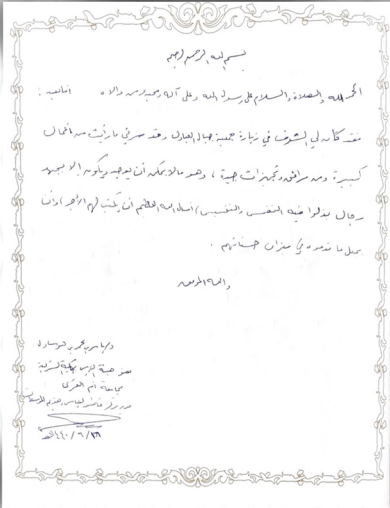 بسم الله الرحمن الرحيم
الحمد لله والصلاة والسلام على رسول الله وعلى آله وصحبه ومن والاه أما بعد :
فقد كان لي الشرف في زيارة جمعية جبال العبادل وقد سرني ما رأيت من أعمال
كبيرة ومن مرافق وتجهيزات جيدة ، وهو ما لا يمكن أن يوجد ويكون إلا بجهد
رجال بذلوا فيه النفس والنفيس ، أسأل الله العظيم أن يكتب لهم الأجر ، وأن
يجعل ما قدموه في ميزان حسناتهم .
والله الموفق
د/ ياسر بن محمد
عضو هيئة التدريس بكلية الشريعة
بجامعة أم القرى
١٤٤٠/٦/٢٨هـ